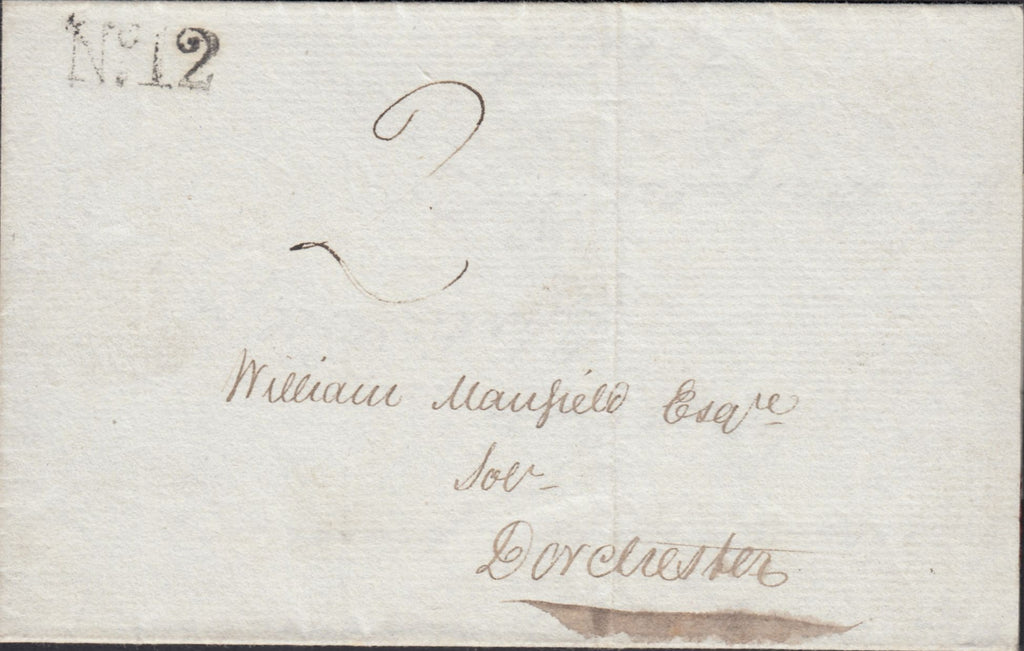 No. 12
2
William Manfield Esqre
Solr
Dorchester